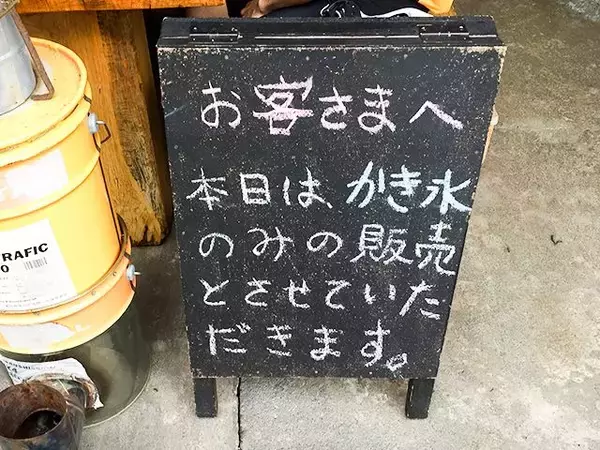 RAFIC
0
お客さまへ
本日は、かき氷
のみの販売
とさせていた
だきます。